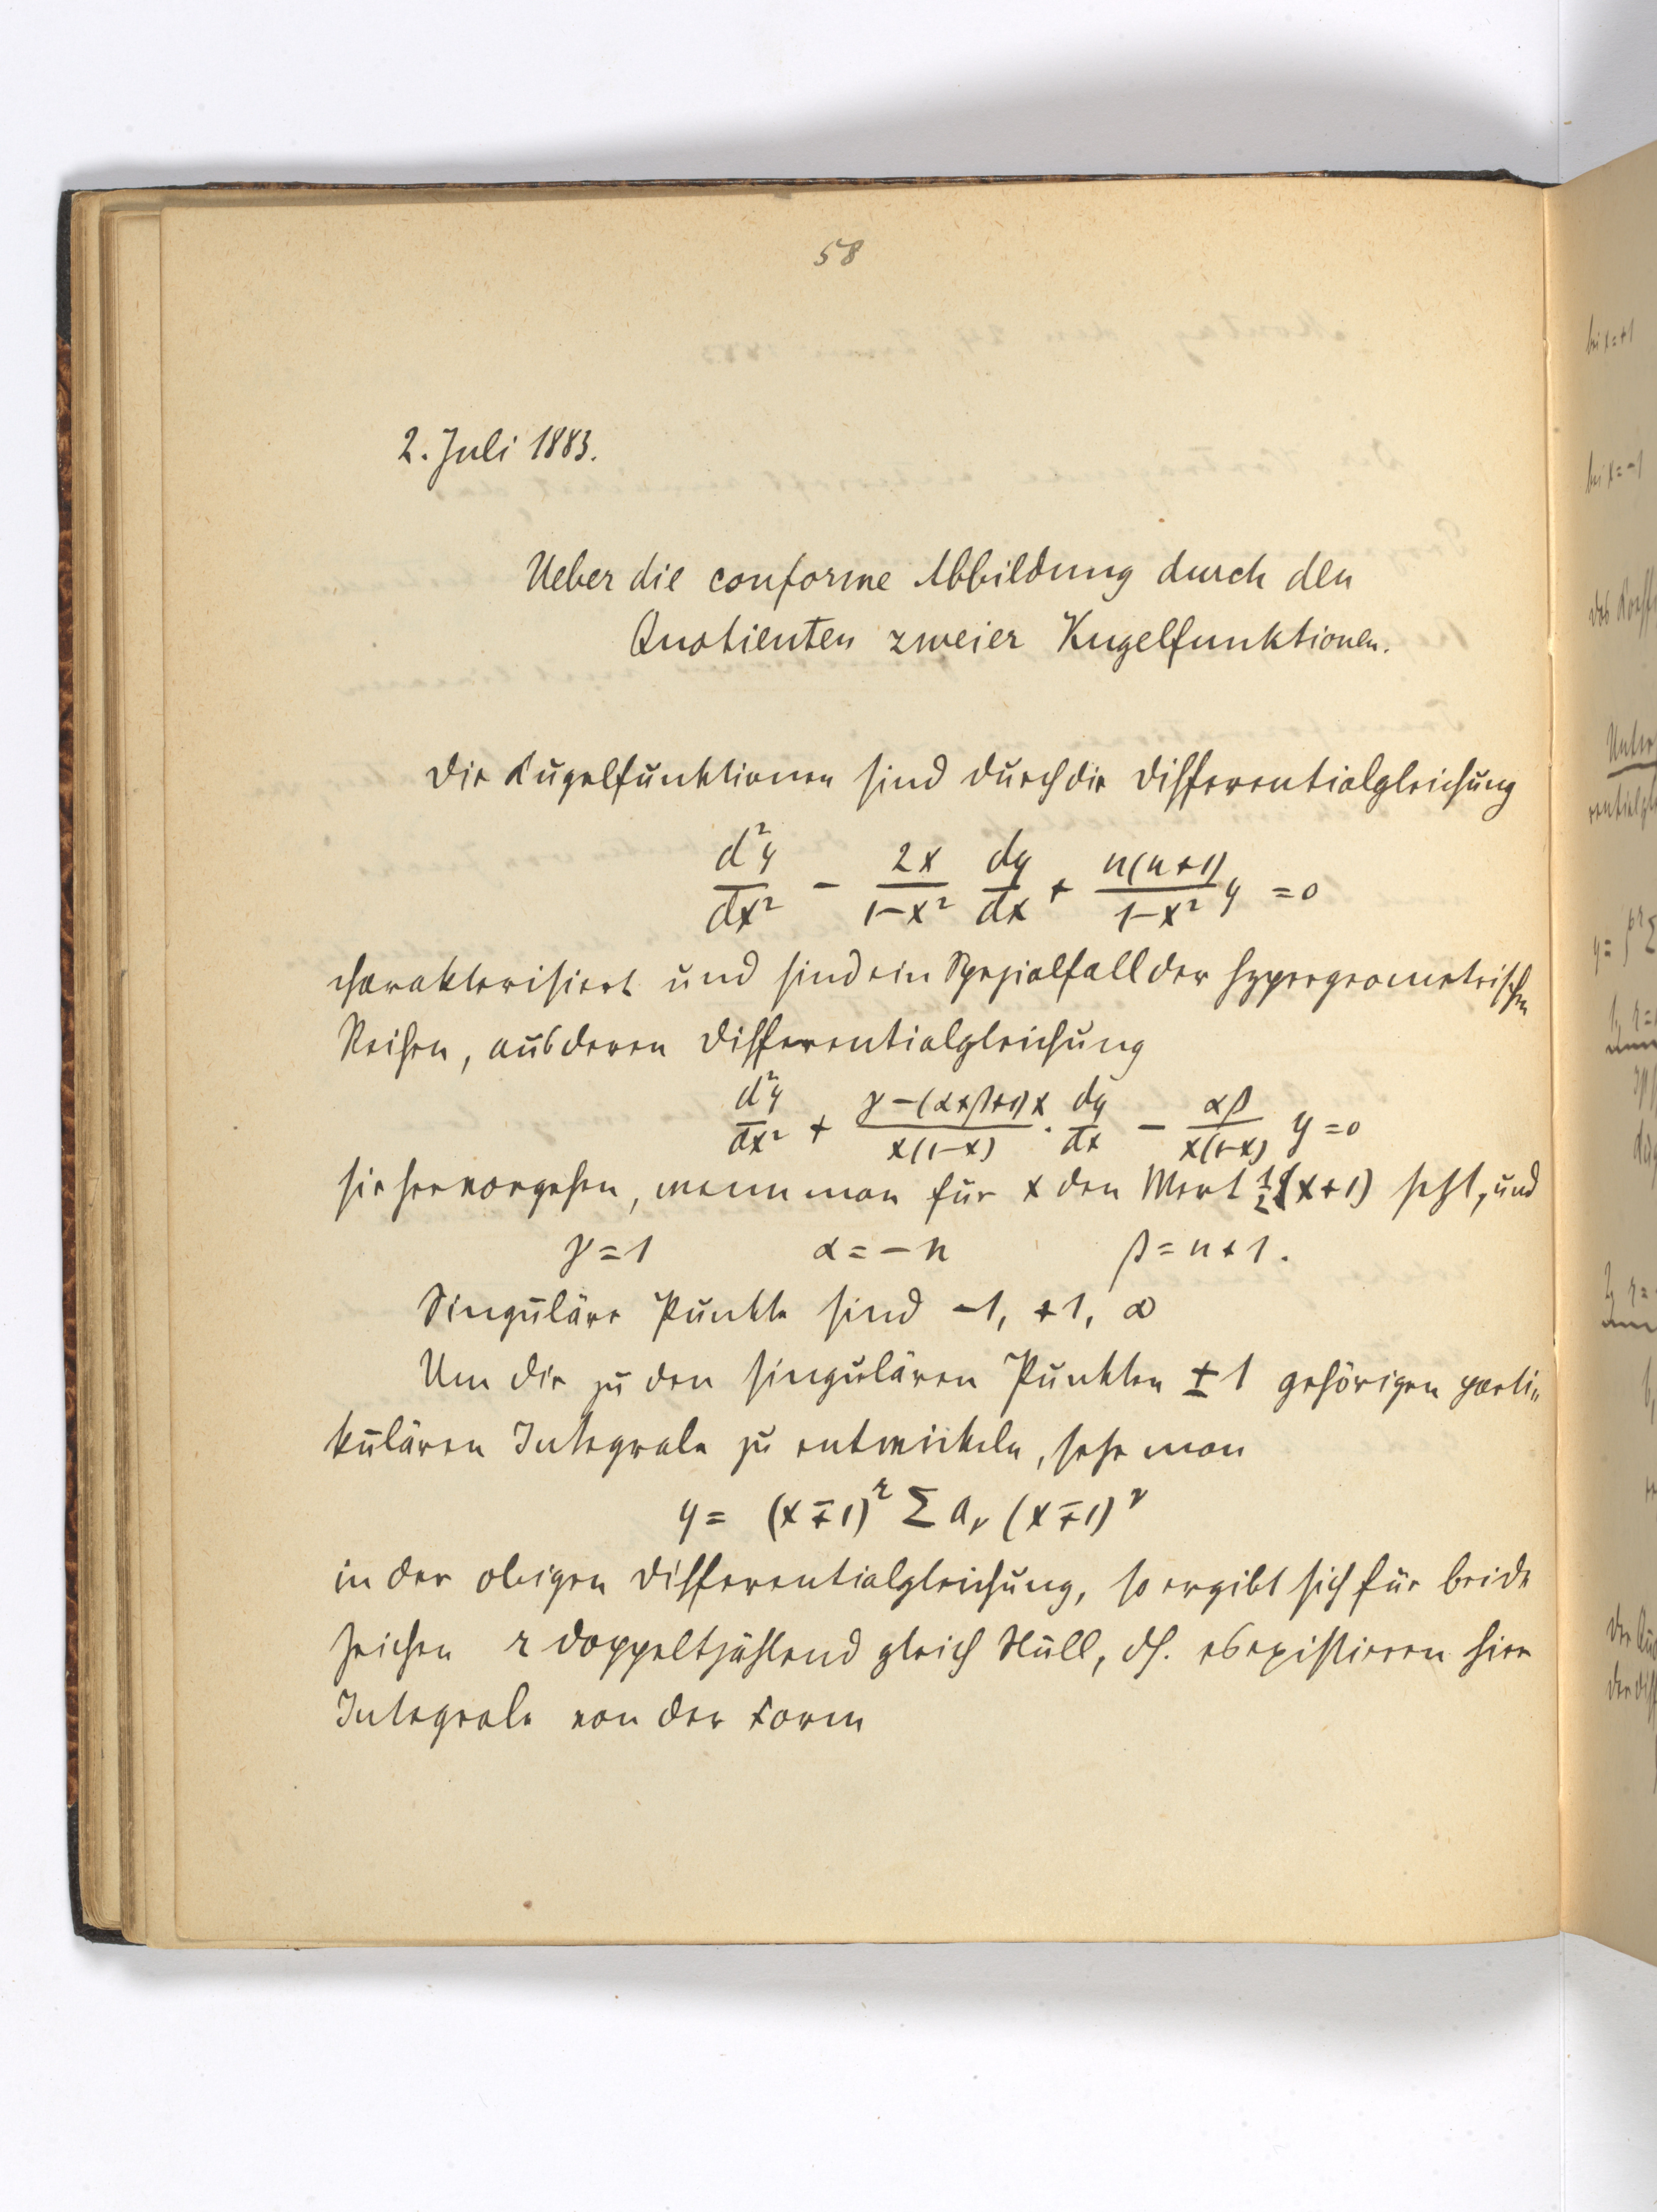 58
2. Juli 1883.
Ueber die conforme Abbildung durch den
Quotienten zweier Kugelfunktionen.
Die Kugelfunktionen sind durch die Differentialgleichung
d²y/dx² - 2x/(1-x²) dy/dx + n(n+1)/(1-x²) y = 0
charakterisiert und sind ein Spezialfall der hypergeometrischen
Reihen, aus deren Differentialgleichung
d²y/dx² + (γ-(α+β+1)x)/(x(1-x)) · dy/dx - αβ/(x(1-x)) y = 0
sie hervorgehen, wenn man für x den Wert ½(x+1) setzt, und
γ = 1 α = -n β = n+1.
Singuläre Punkte sind -1, +1, ∞
Um die zu den singulären Punkten ± 1 gehörigen parti-
kulären Integrale zu entwickeln, setze man
y = (x∓1)^r Σ a_ν (x∓1)^ν
in der obigen Differentialgleichung, so ergibt sich für beide
Zeichen r doppeltzählend gleich Null, dh. es existieren hier
Integrale von der Form
bei x=+1
bei x=-1